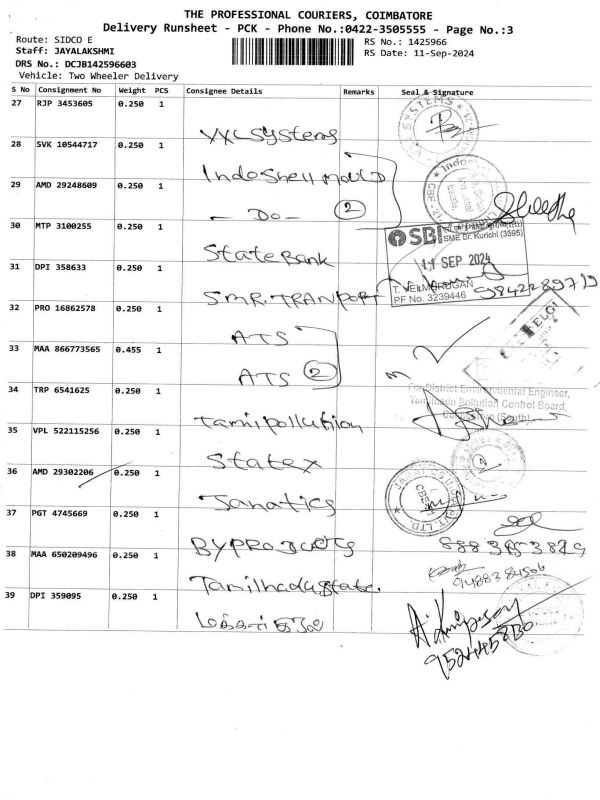 THE PROFESSIONAL COURIERS, COIMBATORE
Delivery Runsheet - PCK - Phone No.:0422-3505555 - Page No.:3
Route: SIDCO E
RS No.: 1425966
Staff: JAYALAKSHMI
RS Date: 11-Sep-2024
DRS No.: DCJB142596603
Vehicle: Two Wheeler Delivery
S No Consignment No Weight PCS Consignee Details Remarks Seal & Signature
27 RJP 3453605 0.250 1
VXL Systems
28 SVK 10544717 0.250 1
Indo Shell mould
29 AMD 29248609 0.250 1
- Do - 2
30 MTP 3100255 0.250 1
State Bank
SBI
SME Br. Kurichi (3595)
11 SEP 2024
T. VELMURUGAN
PF No. 3239446
31 DPI 358633 0.250 1
SMR. TRANPORT
9842289719
32 PRO 16862578 0.250 1
ATS
ELGI
33 MAA 866773565 0.455 1
ATS 2
For District Environmental Engineer,
Tamilnadu Pollution Control Board,
Coimbatore (South).
34 TRP 6541625 0.250 1
Tamil pollution
35 VPL 522115256 0.250 1
Statex
36 AMD 29302206 0.250 1
Janatics
37 PGT 4745669 0.250 1
BYPRODUCTS
38 MAA 650209496 0.250 1
Tamilnadu State.
39 DPI 359095 0.250 1